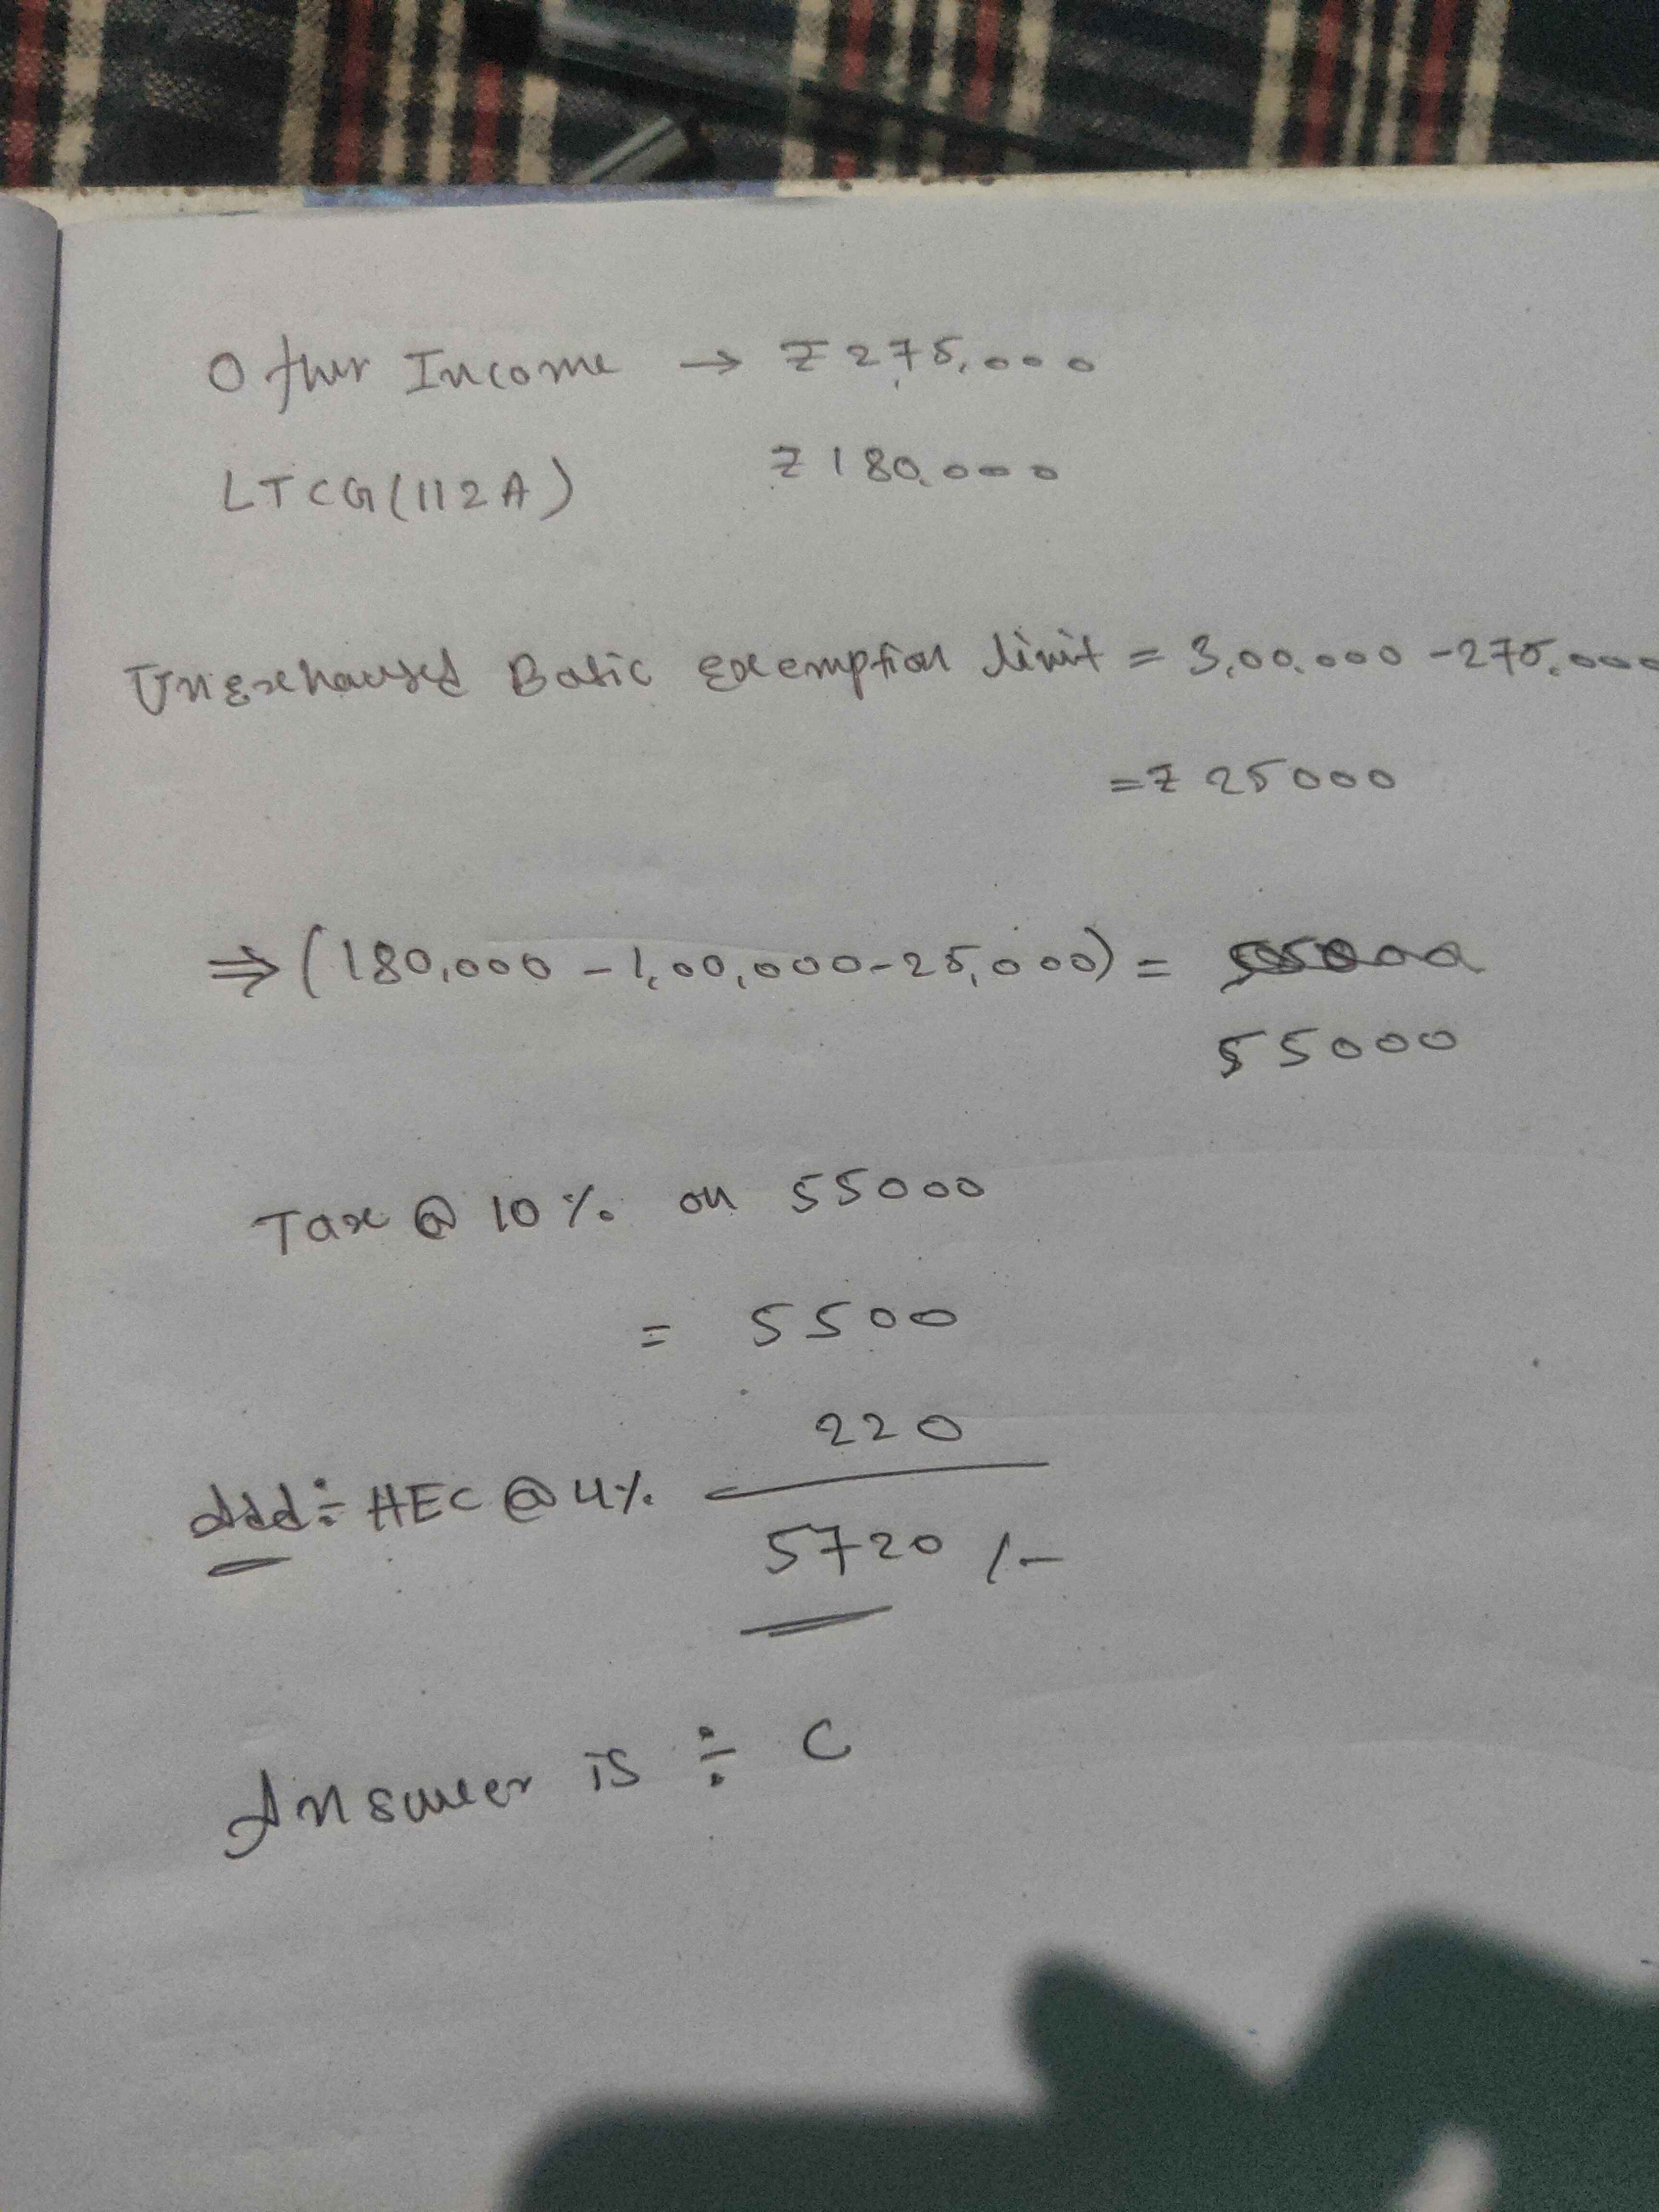 Other Income → ₹275,000
LTCG(112A) ₹180,000
Unexhausted Basic exemption limit = 3,00,000 - 275,000
= ₹ 25000
⇒ (180,000 - 1,00,000 - 25,000) =
55000
Tax @ 10% on 55000
= 5500
220
Add:- HEC @ 4%
5720 /-
Answer is :- C